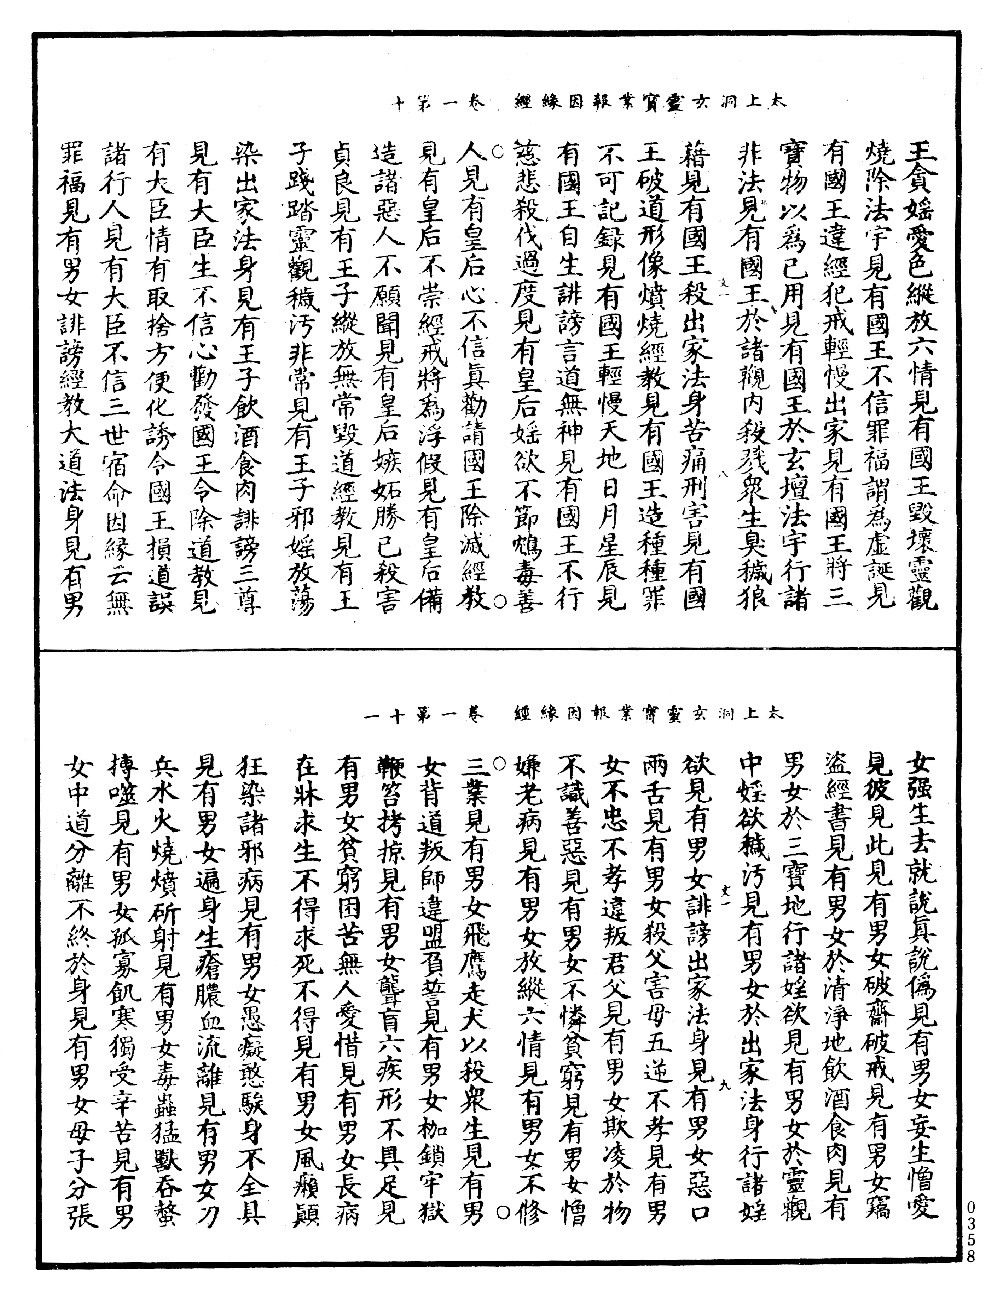 太上洞玄靈寶業報因緣經　卷一第十
王貪婬愛色縱放六情見有國王毀壞靈觀
燒除法宇見有國王不信罪福謂為虛誕見
有國王違經犯戒輕慢出家見有國王將三
寶物以為已用見有國王於玄壇法宇行諸
非法見有國王於諸觀內殺戮衆生臭穢狼
文一　八
藉見有國王殺出家法身苦痛刑害見有國
王破道形像燌燒經教見有國王造種種罪
不可記録見有國王輕慢天地日月星辰見
有國王自生誹謗言道無神見有國王不行
慈悲殺伐過度見有皇后婬欲不節鴆毒善
人見有皇后心不信真勸請國王除滅經教
見有皇后不崇經戒將為浮假見有皇后備
造諸惡人不願聞見有皇后嫉妬勝已殺害
貞良見有王子縱放無常毀道經教見有王
子踐踏靈觀穢污非常見有王子邪婬放蕩
染出家法身見有王子飲酒食肉誹謗三尊
見有大臣生不信心勸發國王令除道教見
有大臣情有取捨方便化誘令國王損道誤
諸行人見有大臣不信三世宿命因緣云無
罪福見有男女誹謗經教大道法身見有男
太上洞玄靈寶業報因緣經　卷一第十一
女强生去就說真說偽見有男女妄生憎愛
見彼見此見有男女破齋破戒見有男女竊
盜經書見有男女於清淨地飲酒食肉見有
男女於三寶地行諸婬欲見有男女於靈觀
中婬欲穢污見有男女於出家法身行諸婬
文一　九
欲見有男女誹謗出家法身見有男女惡口
兩舌見有男女殺父害母五逆不孝見有男
女不忠不孝違叛君父見有男女欺凌於物
不識善惡見有男女不憐貧窮見有男女憎
嫌老病見有男女放縱六情見有男女不修
三業見有男女飛鷹走犬以殺衆生見有男
女背道叛師違盟負誓見有男女枷鎖牢獄
鞭笞拷掠見有男女聾盲六疾形不具足見
有男女貧窮困苦無人愛惜見有男女長病
在牀求生不得求死不得見有男女風癩顛
狂染諸邪病見有男女愚癡憨騃身不全具
見有男女遍身生瘡膿血流離見有男女刀
兵水火燒燌斫射見有男女毒蟲猛獸吞螫
搏噬見有男女孤寡飢寒獨受辛苦見有男
女中道分離不終於身見有男女母子分張
0358